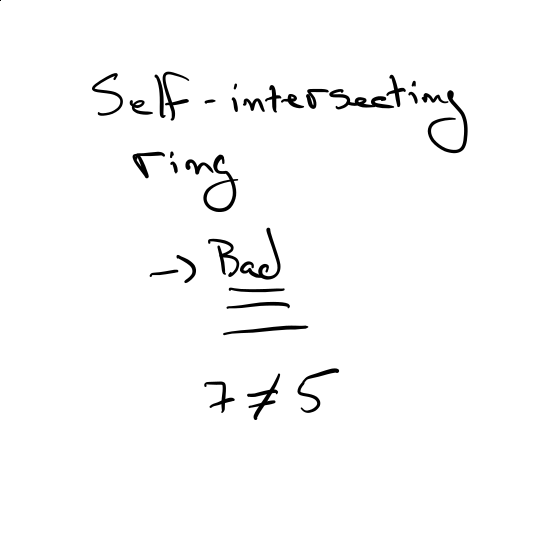 Self-intersecting
ring
→ Bad
7 ≠ 5